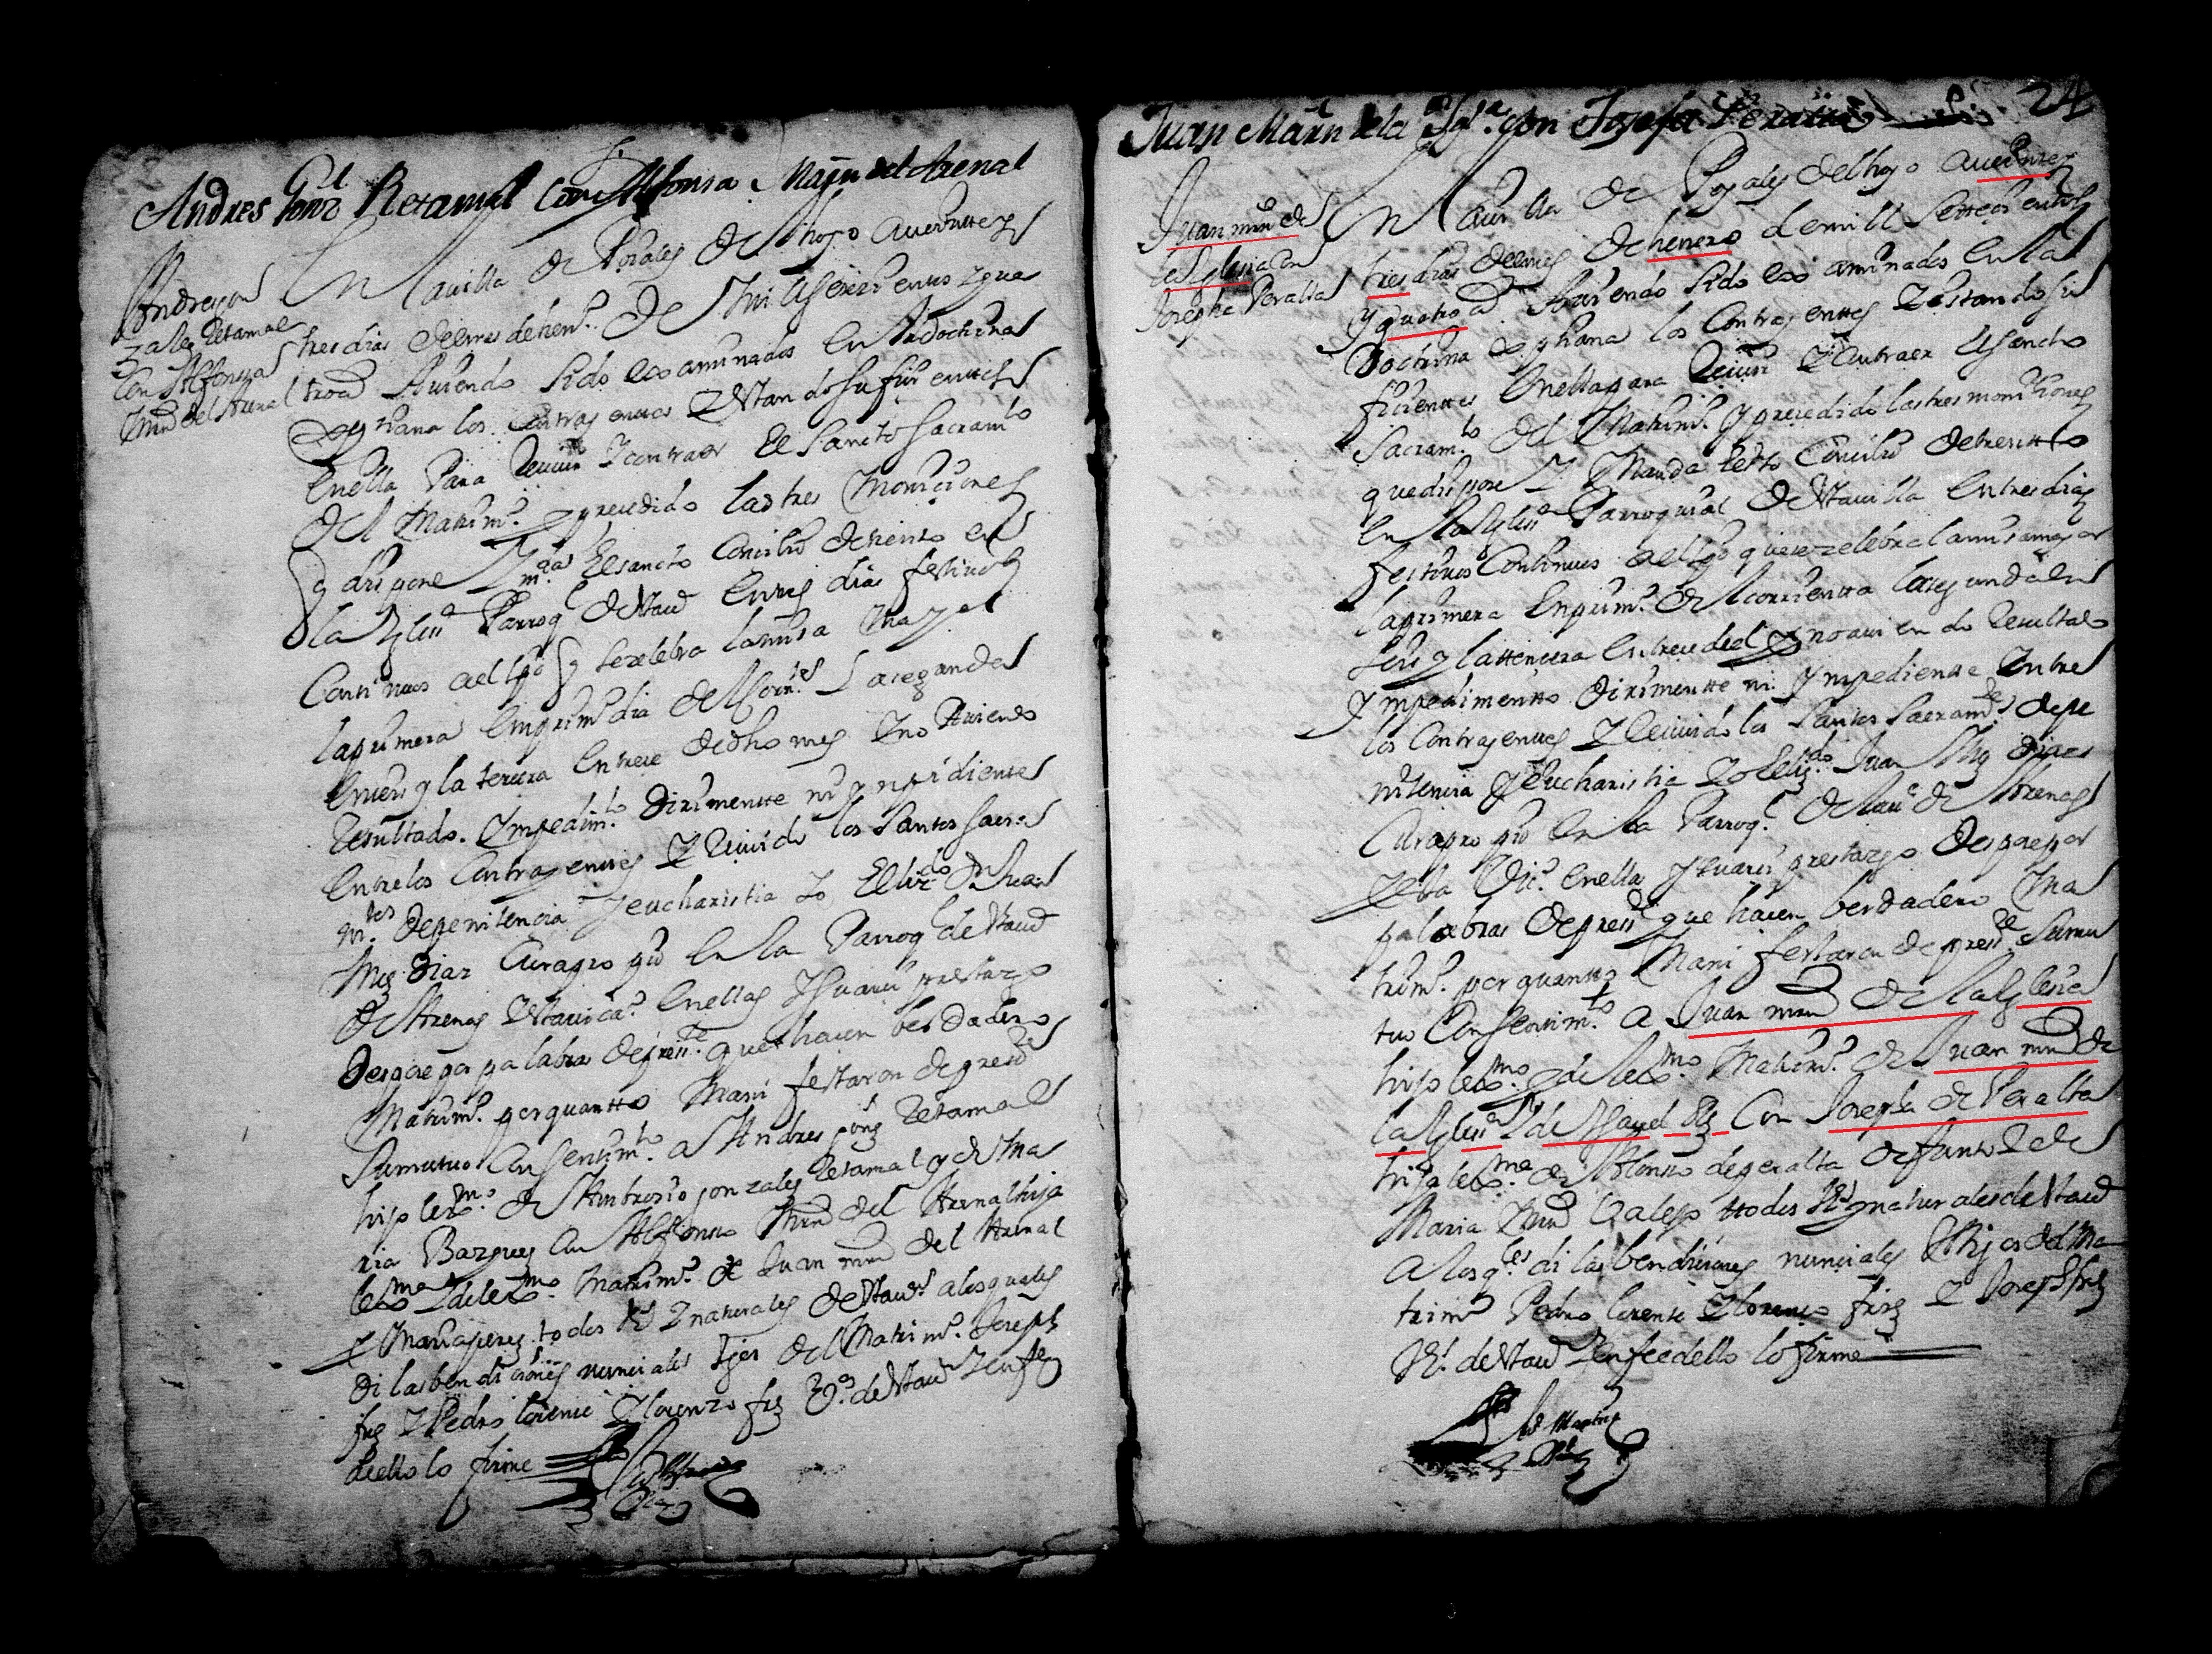 Andres Gonz.l Retamal Con Alfonsa Mañn del Arenal
Andres gon
zales Retamal
Con Alfonsa
Mrn del Arenal
En la villa de Poxales del hoyo a veinttey
tres dias del mes de hen.o de Mill setezientos y qua
tro a.s Auiendo sido examinados en la dochrina
xpthiana los Contrayenttes y estando suficienttes
en ella Para Reciuir y contraer El Sancto Sacram.to
del Matrim.o y precedido las tres Moniciones
q dispone y m.da El sancto Concilio de trento en
la Yglesia Parroq.l de esta v.a en tres dias festiuos
Continuos al tpo q se zelebra la misa may.or
la primera en prim.o dia del Corr.te La segunda
en seis y la tercera en trece de dho mes y no Auiendo
Resultado Ympedim.to dirimentte ni ympidiente
entre los Contrayentes y Reciuido los Santos Sacra
m.tos de penitencia y eucharistia yo El liz.do D.n Juan
Mrz Diaz Cura pro pio en la Parroq.l de la v.a
de Arenas y esta vica.a en ellas y su arzi prestazgo
Despose por palabras de pres.te que hacen berdadero
Matrim.o por quantto Mani festaron de pres.te
Su mutuo Consentim.to a Andres gonz Retamal
hijo lex.mo de Ambrosio gonzales Retamal y de Ma
ria Bazquez Con Alfonsa Mrn del Arenal hija
lex.ma y de lex.mo Matrim.o de Juan mrn del Arenal
y Maria perez todos V.s y naturales de esta v.a a los quales
di las bendiciones nunciales tgos del Matrim.o Joseph
frz y Pedro lorente y lorenzo frz V.os de esta v.a y en fe
de ello lo firme
Juan Mañn de la Igl.a con Josefa Peralta
24
Juan mrn de
la Yglesia con
Josepha Peralta
En la villa de Poyales del hoyo a veintte y
tres dias del mes de henero de mill settecientos
y quatro a.s Auiendo sido examinados en la
Doctrina xpthiana los Contrayenttes y estando su
ficienttes en ella para Reciuir y Contraer el Sancto
Sacram.to del Matrim.o y precedido las tres moniciones
que dispone y Manda el s.to Concilio de trentto
en la Yglesia Parroquial de esta villa en tres dias
festiuos Continuos al tpo que se zelebra la misa mayor
la primera en prim.o del corrientte la segunda en
seis y la ttercera en trece del y no auiendo Resultado
Ympedimentto dirimentte ni Ympediente entre
los Contrayentes y Reciuido los Santos Sacram.tos de pe
nitencia y eucharistia yo el liz.do Juan Mrz Diaz
Cura pro pio en la Parroq.l de la v.a de Arenas
y esta Vic.a en ella y su arzi prestazgo Despose por
palabras de pres.te que hacen berdadero Ma
trim.o por quantto Mani festaron de pres.te su mu
tuo Consentim.to a Juan mrn de la Yglesia
hijo lex.mo y de lex.mo Matrim.o de Juan mrn de
la Yglesia y de Ysauel Rz Con Josepha de Peralta
hija lex.ma de Alonso de peralta difunto y de
Maria Mrn Galego ttodos V.s y naturales de esta v.a
a los q.les di las bendiciones nunciales tgos del Ma
trim.o Pedro lorente y lorenzo frz y Joseph frz
V.s de esta v.a y en fee dello lo firme